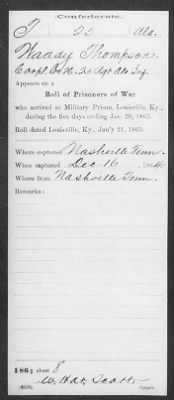 Confederate.
T 23 Ala.
Waddy Thompson
Corpl Co K. 23 Rgt Ala Inf
Appears on a
Roll of Prisoners of War
who arrived at Military Prison, Louisville, Ky.,
during the five days ending Jan. 20, 1865.
Roll dated Louisville, Ky., Jan'y 21, 1865.
Where captured Nashville Tenn.
When captured Dec 16, 1864
Where from Nashville Tenn.
Remarks:
1863 sheet 8
Scott
Copyist.